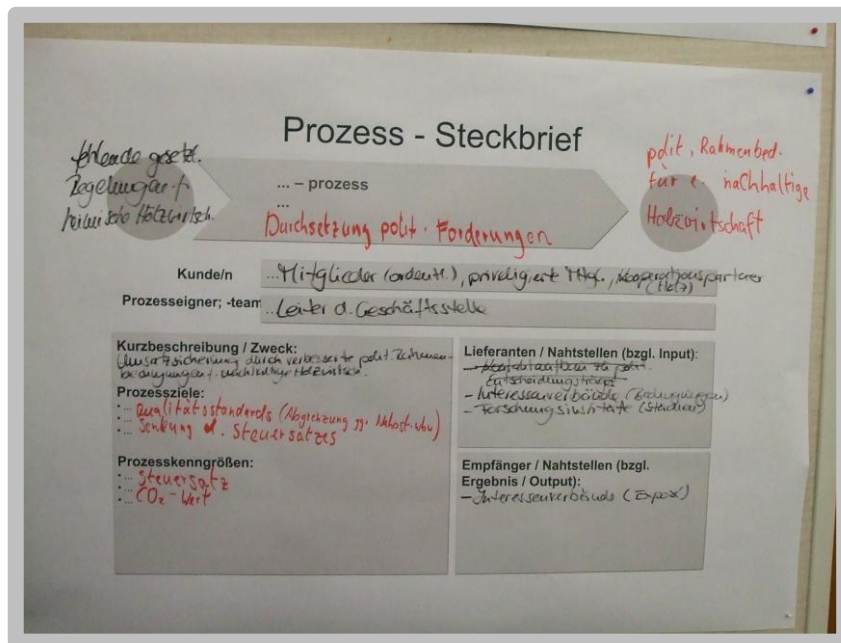 Prozess - Steckbrief
fehlende gesetzl.
Regelungen f.
heimische Holzwirtsch.
... – prozess
...
Durchsetzung polit. Forderungen
polit. Rahmenbed.
für e. nachhaltige
Holzwirtschaft
Kunde/n
...Mitglieder (ordentl.), priveligierte Mitgl., Kooperationspartner
(Holz)
Prozesseigner; -team
...Leiter d. Geschäftsstelle
Kurzbeschreibung / Zweck:
Umsatzsicherung durch verbesserte polit. Rahmen-
bedingungen f. nachhaltige Holzwirtsch.
Prozessziele:
... Qualitätsstandards (Abgrenzung gg.
... Senkung d. Steuersatzes
Prozesskenngrößen:
... Steuersatz
... CO₂-Wert
Lieferanten / Nahtstellen (bzgl. Input):
- Kontaktaufbau zu polit.
Entscheidungsträger
- Interessenverbände
- Forschungsinstitute (Studien)
Empfänger / Nahtstellen (bzgl.
Ergebnis / Output):
- Interessenverbände (Exposé)